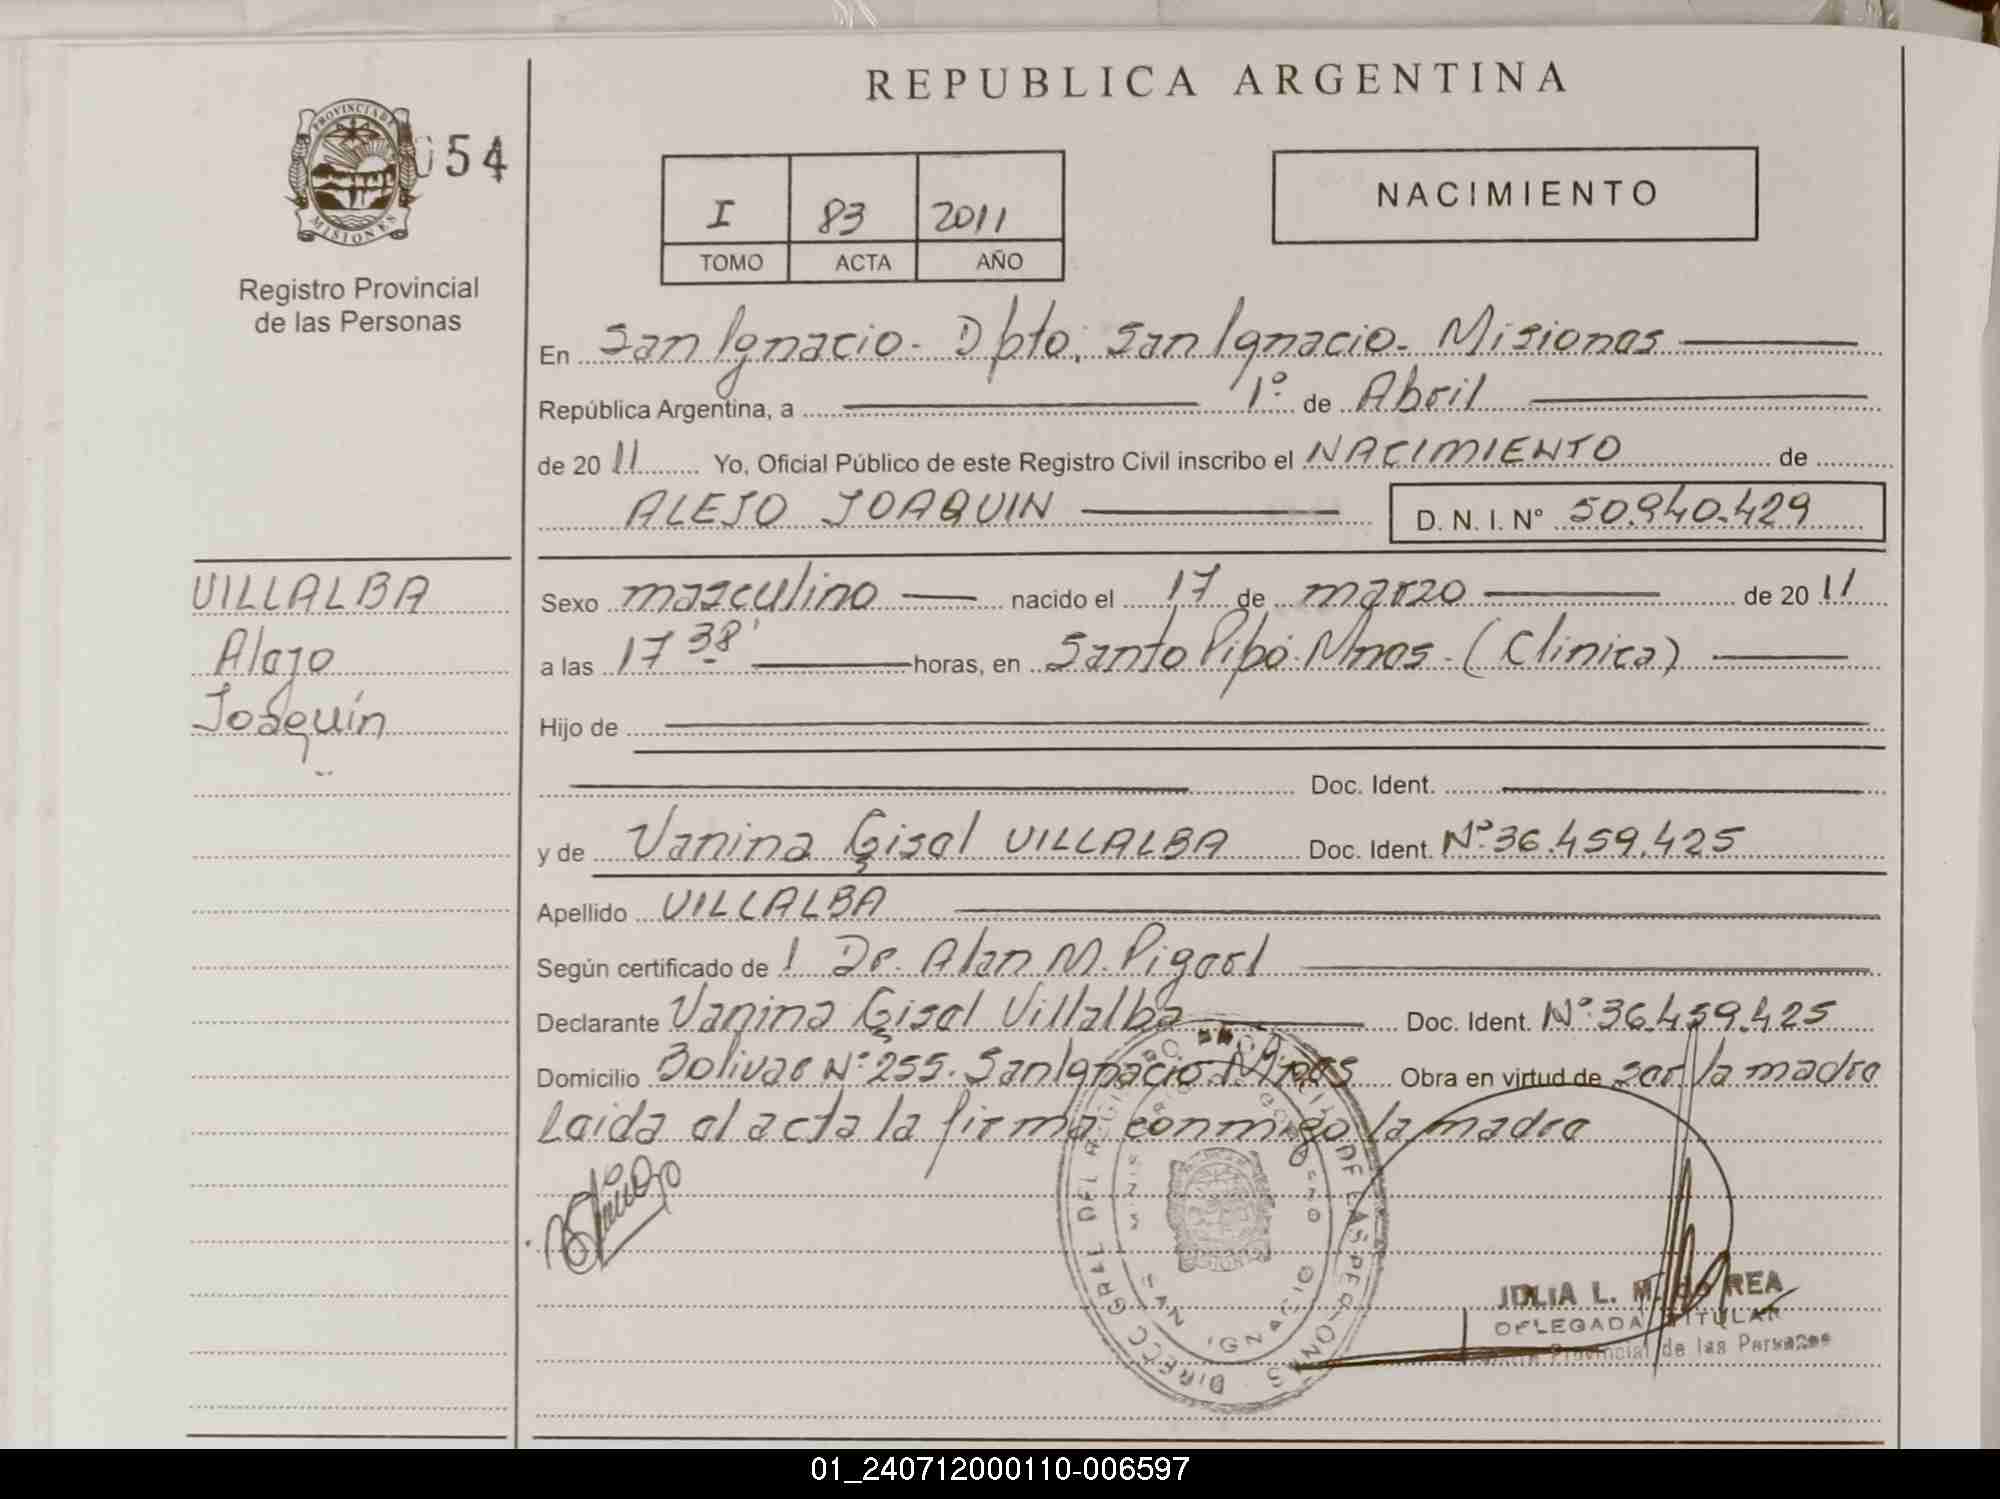 REPUBLICA ARGENTINA
PROVINCIA DE
MISIONES
054
Registro Provincial
de las Personas
I 83 2011
TOMO ACTA AÑO
NACIMIENTO
En San Ignacio - Dpto. San Ignacio - Misiones
República Argentina, a 1° de Abril
de 2011 Yo, Oficial Público de este Registro Civil inscribo el NACIMIENTO de
ALEJO JOAQUIN D. N. I. N° 50.940.429
VILLALBA
Alejo
Joaquín
Sexo masculino nacido el 17 de marzo de 2011
a las 17 38' horas, en Santo Pipó. Mnes. (Clinica)
Hijo de
Doc. Ident.
y de Vanina Gisel VILLALBA Doc. Ident. N° 36.459.425
Apellido VILLALBA
Según certificado de l Dr. Alan M. Pigerl
Declarante Vanina Gisel Villalba Doc. Ident. N° 36.459.425
Domicilio Bolivar N° 255. San Ignacio. Mnes Obra en virtud de ser la madre
Leida el acta la firma conmigo la madre
SAN IGNACIO
MISIONES
JULIA L. M.
DELEGADA TITULAR
Provincial de las Personas
01_240712000110-006597